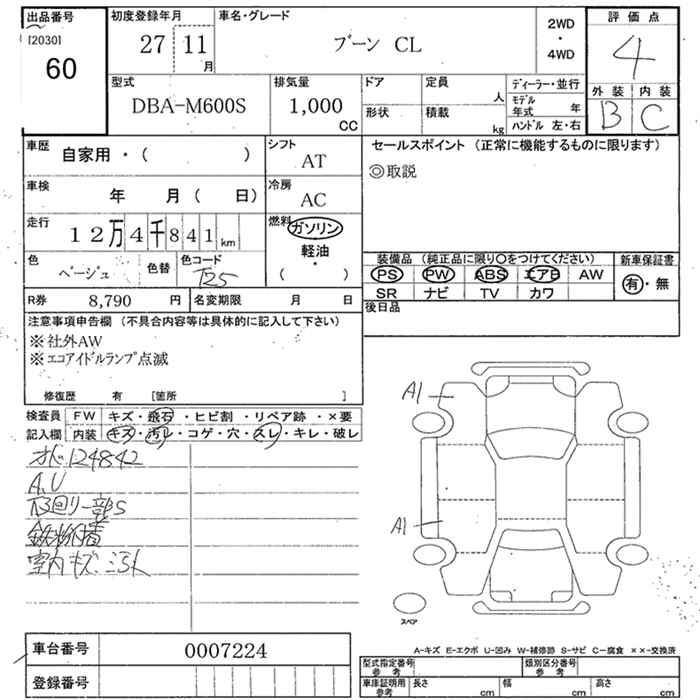 出品番号
[2030]
60
初度登録年月
27 11
月
車名・グレード
ブーン CL
2WD
・
4WD
評価点
4
外装 内装
B C
型式
DBA-M600S
排気量
1,000
CC
ドア
形状
定員
人
積載
kg
ディーラー・並行
モデル年式 年
ハンドル 左・右
車歴 自家用・( )
シフト
AT
車検 年 月 ( 日)
冷房
AC
走行 12万4千841km
燃料
ガソリン
・
軽油
・
( )
色
ベージュ
色替
色コード
T25
R券 8,790 円
名変期限 月 日
セールスポイント (正常に機能するものに限ります)
◎取説
装備品 (純正品に限り○をつけてください)
PS PW ABS エアB AW
SR ナビ TV カワ
新車保証書
有・無
後日品
注意事項申告欄 (不具合内容等は具体的に記入して下さい)
※社外AW
※エコアイドルランプ点滅
修復歴 有 [箇所 ]
検査員記入欄
FW キズ・飛石・ヒビ割・リペア跡・×要
内装 キズ・汚レ・コゲ・穴・スレ・キレ・破レ
124842
A、U
下回り一部S
鉄粉付着
室内キズ
A1
A1
スペア
A-キズ E-エクボ U-凹み W-補修跡 S-サビ C-腐食 ××-交換済
車台番号 0007224
登録番号
型式指定番号 参考
類別区分番号 参考
車庫証明用 参考
長さ cm 幅 cm 高さ cm